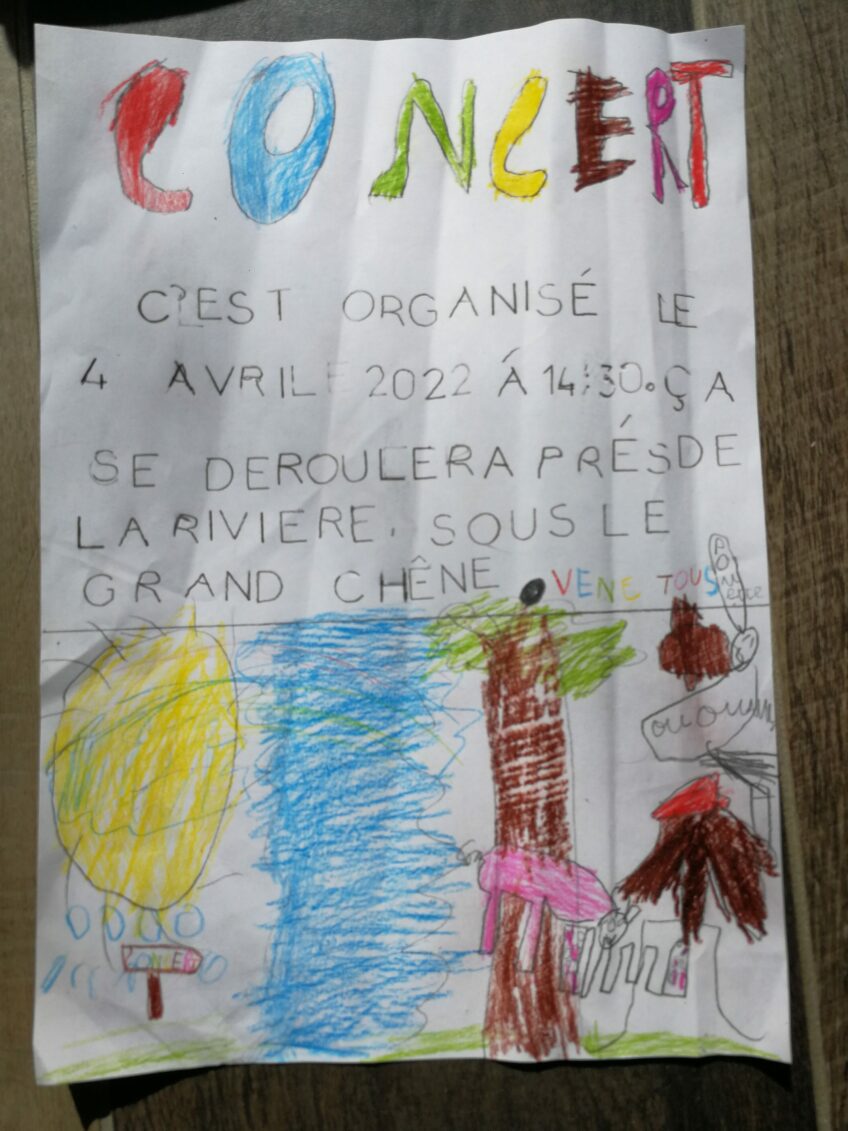 CONCERT
C'EST ORGANISÉ LE
4 AVRIL 2022 Á 14:30. ÇA
SE DEROULERA PRÉS DE
LA RIVIERE. SOUS LE
GRAND CHÊNE VENE TOUS
CONCERT